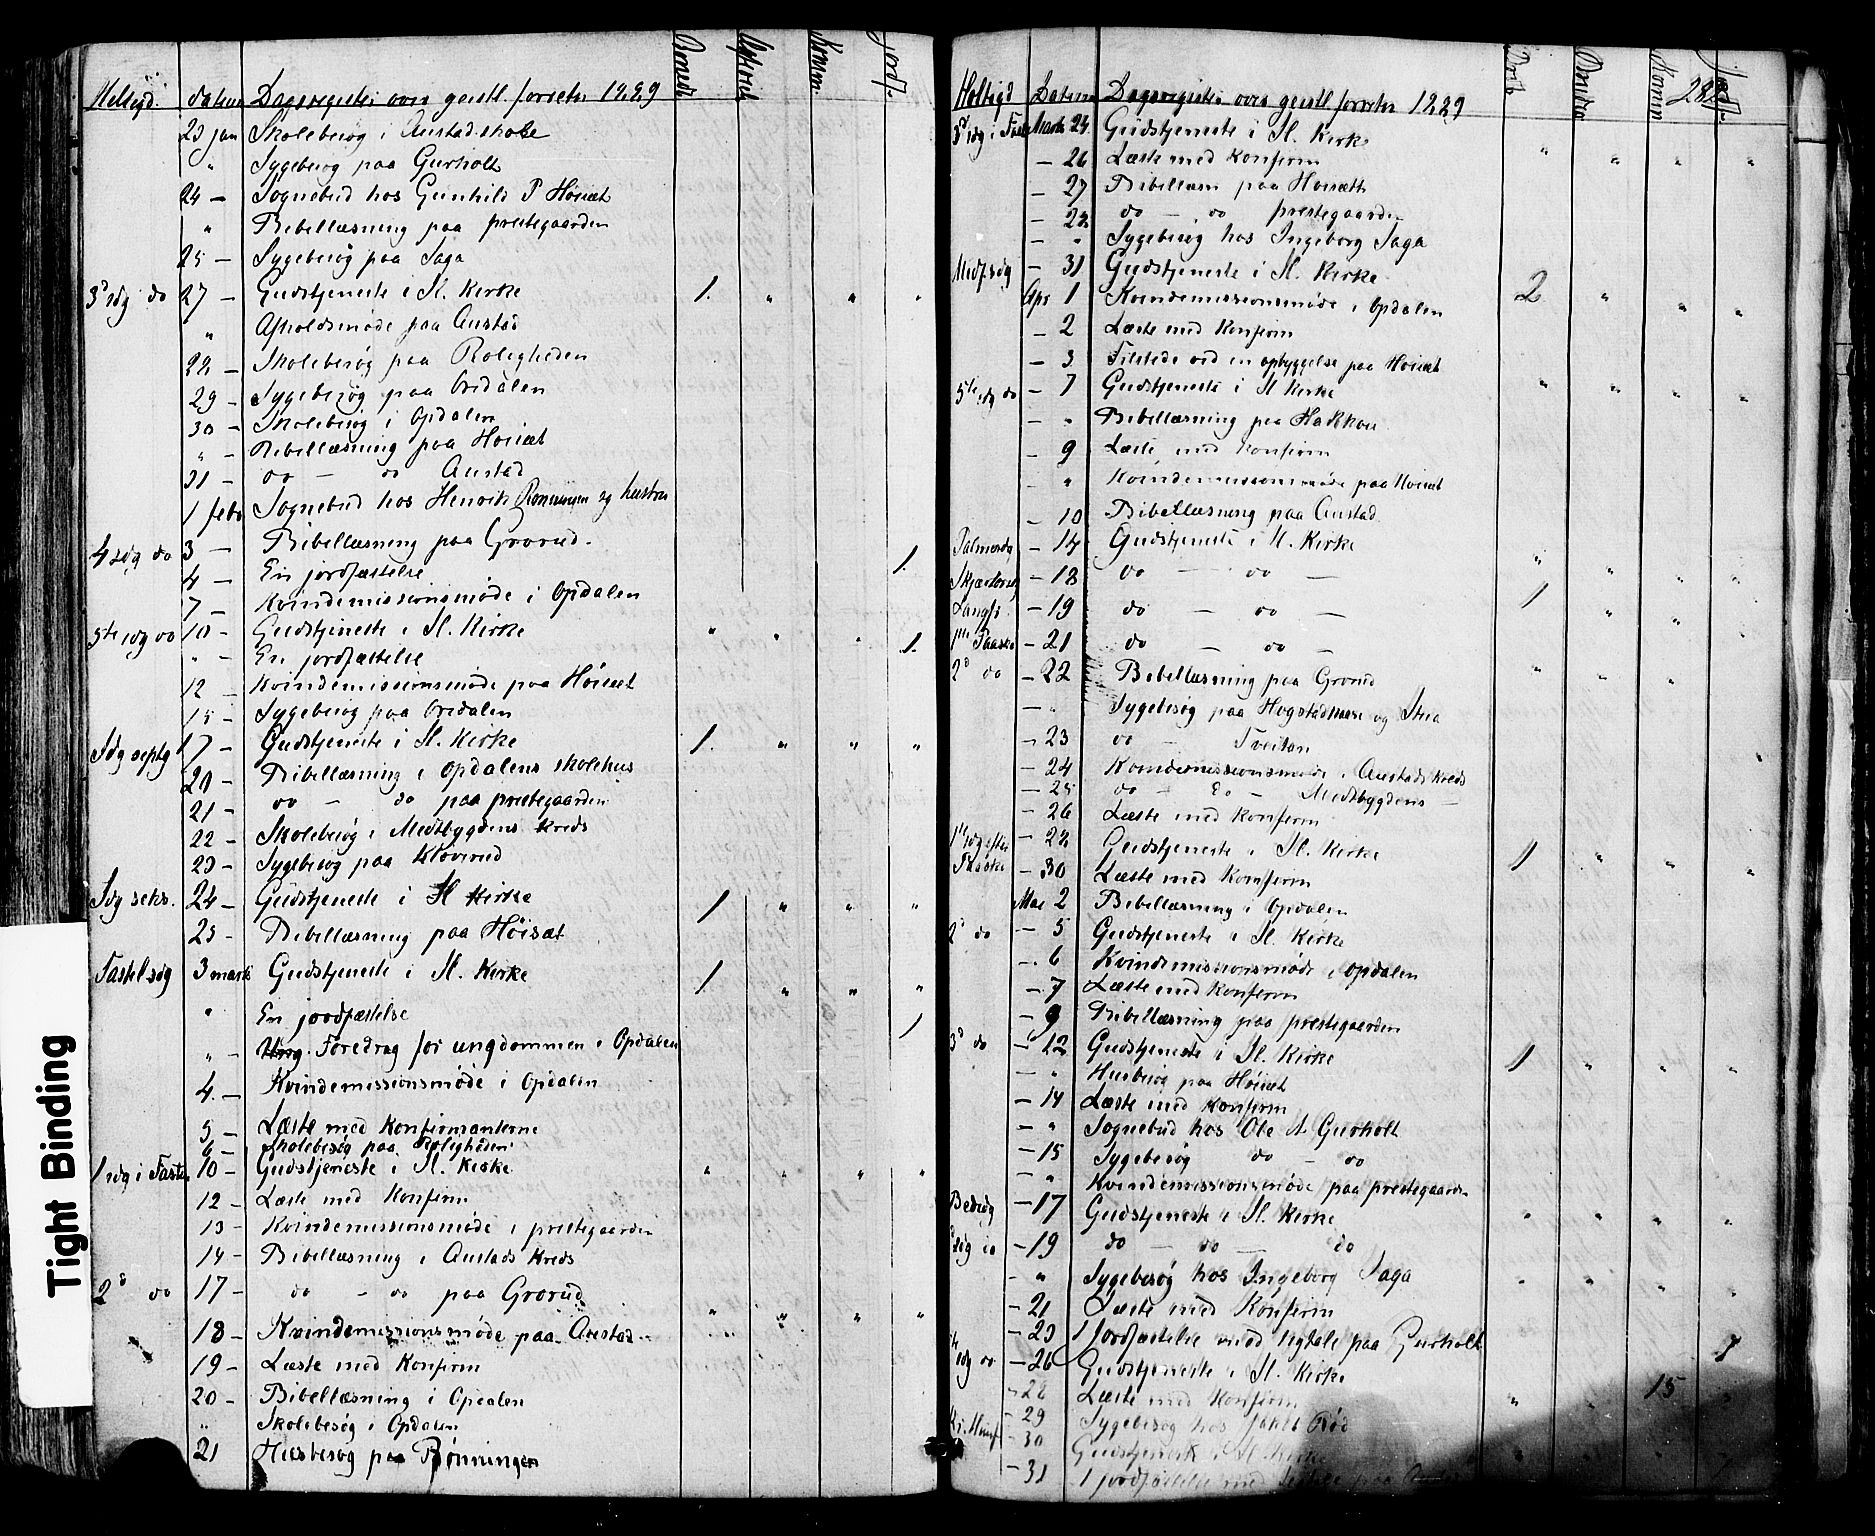 Helligd. datum Dagsregister over geistl. forretn 1889
23 jan Skolebesøg i Austad skole
" Sygebesøg paa Gurholt
24 — Sognebud hos Gunhild P Høisæt
" Bibellæsning paa prestegaarden
25 — Sygebesøg paa Saga
3d sdg do 27 — Gudstjeneste i H. Kirke 1. " " "
" Afholdsmøde paa Austad
28 — Skolebesøg paa Roligheden
29 — Sygebesøg paa
30 — Skolebesøg i Opdalen
" — Bibellæsning paa Høisæt
31 — do — do Austad
1 feb. Sognebud hos Henrik og hustru
4 sdg do 3 — Bibellæsning paa Grorud.
4 — En jordfæstelse 1.
7 — Kvindemissionsmøde i Opdalen
5te sdg do 10 — Gudstjeneste i H. Kirke " " "
" — En jordfæstelse 1.
12 — Kvindemissionsmøde paa Høisæt
15 — Sygebesøg paa
Sdg septg 17 — Gudstjeneste i H. Kirke 1. " " "
20 — Bibellæsning i Opdalens skolehus
21 — do — do paa prestegaarden
22 — Skolebesøg i Midtbygdens Kreds
23 — Sygebesøg paa Kloverud
Sdg seks. 24 — Gudstjeneste i H Kirke 1 " " "
25 — Bibellæsning paa Høisæt
Fastel sdg 3 marts Gudstjeneste i H. Kirke 1 " " "
" En jordfæstelse 1
" — Foredrag for ungdommen i Opdalen
4 — Kvindemissionsmøde i Opdalen
5 — Læste med Konfirmanterne
6 — Skolebesøg paa Roligheden
1 sdg i Faste 10 — Gudstjeneste i H. Kirke " " " "
12 — Læste med Konfirm
13 — Kvindemissionsmøde i prestegaarden
14 — Bibellæsning i Austads Kreds
2d do 17 — do — do paa Grorud " " " "
18 — Kvindemissionsmøde paa Austad
19 — Læste med Konfirm
20 — Bibellæsning i Opdalen
" Skolebesøg i Opdalen
21 Husbesøg paa Rønningen
Helligd Datum Dagsregister over geistl. forretn 1889 Konfirm
3d sdg i Faste Marts 24 Gudstjeneste i H. Kirke " " " "
— 26 Læste med Konfirm
— 27 Bibellæsn paa Høisæth
— 28 do — do prestegaarden
— " Sygebesøg hos Ingeborg Saga
Midf. sdg — 31 Gudstjeneste i H. Kirke
Apr 1 Kvindemissionsmøde i Opdalen 2 " " "
— 2 Læste med Konfirm
— 3 Tilstede ved en opbyggelse paa Høisæt
5te sdg do — 7 Gudstjeneste i H Kirke " " " "
— " Bibellæsning paa
— 9 Læste med Konfirm
— " Kvindemissionsmøde paa Høisæt
— 10 Bibellæsning paa Austad
Palmesdg — 14 Gudstjeneste i H. Kirke " " " "
— 18 do — do —
Langfr. — 19 do — do — 1 " " "
1ste Paaske — 21 do — do —
2d do — 22 Bibellæsning paa Grorud " " "
— " Sygebesøg paa og
— 23 do — Tveitan
— 24 Kvindemissionsmøde i Austads Kreds
— 25 do — do — Midtbygdens —
— 26 Læste med Konfirm
1ste sdg efter Paaske — 28 Gudstjeneste i H. Kirke 1 " " "
— 30 Læste med Konfirm
Mai 2 Bibellæsning i Opdalen
2d do — 5 Gudstjeneste i H. Kirke
— 6 Kvindemissionsmøde i Opdalen
— 7 Læste med Konfirm
— 9 Bibellæsning paa prestegaarden
3d do — 12 Gudstjeneste i H. Kirke 1 " " "
— " Husbesøg paa Høisæt
— 14 Læste med Konfirm
— " Sognebud hos Ole A. Gurholt
— 15 Sygebesøg do — do
— " Kvindemissionsmøde paa prestegaarden
Bededg — 17 Gudstjeneste i H. Kirke " " " "
sdg do — 19 do — do — do
— " Sygebesøg hos Ingeborg Saga " " " "
— 21 Læste med Konfirm
— 23 1 Jordfæstelse med ligtale paa Gurholt 1
sdg do — 26 Gudstjeneste i H. Kirke
— 28 Læste med Konfirm " " 15 "
— 29 Sygebesøg hos Jakob Rød
Kr. Himf — 30 Gudstjeneste i H. Kirke
— 31 1 jordfæstelse med ligtale paa
Tight Binding